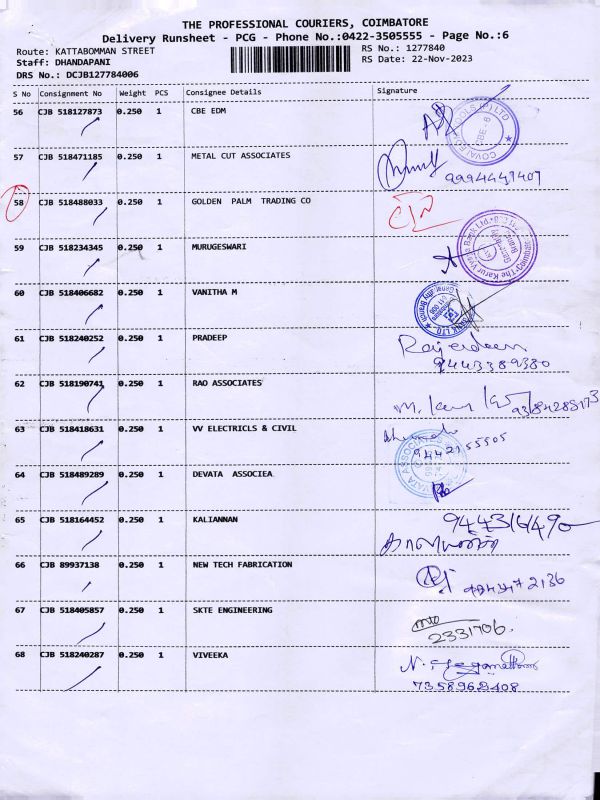 THE PROFESSIONAL COURIERS, COIMBATORE
Delivery Runsheet - PCG - Phone No.:0422-3505555 - Page No.:6
Route: KATTABOMMAN STREET RS No.: 1277840
Staff: DHANDAPANI RS Date: 22-Nov-2023
DRS No.: DCJB127784006
S No Consignment No Weight PCS Consignee Details Signature
56 CJB 518127873 0.250 1 CBE EDM
57 CJB 518471185 0.250 1 METAL CUT ASSOCIATES
9994449407
58 CJB 518488033 0.250 1 GOLDEN PALM TRADING CO
59 CJB 518234345 0.250 1 MURUGESWARI
60 CJB 518406682 0.250 1 VANITHA M
61 CJB 518240252 0.250 1 PRADEEP
9443389380
62 CJB 518190741 0.250 1 RAO ASSOCIATES
63 CJB 518418631 0.250 1 VV ELECTRICLS & CIVIL
9442155505
64 CJB 518489289 0.250 1 DEVATA ASSOCIEA
65 CJB 518164452 0.250 1 KALIANNAN 9443161490
66 CJB 89937138 0.250 1 NEW TECH FABRICATION
67 CJB 518405857 0.250 1 SKTE ENGINEERING
2331706.
68 CJB 518240287 0.250 1 VIVEEKA
7358969408